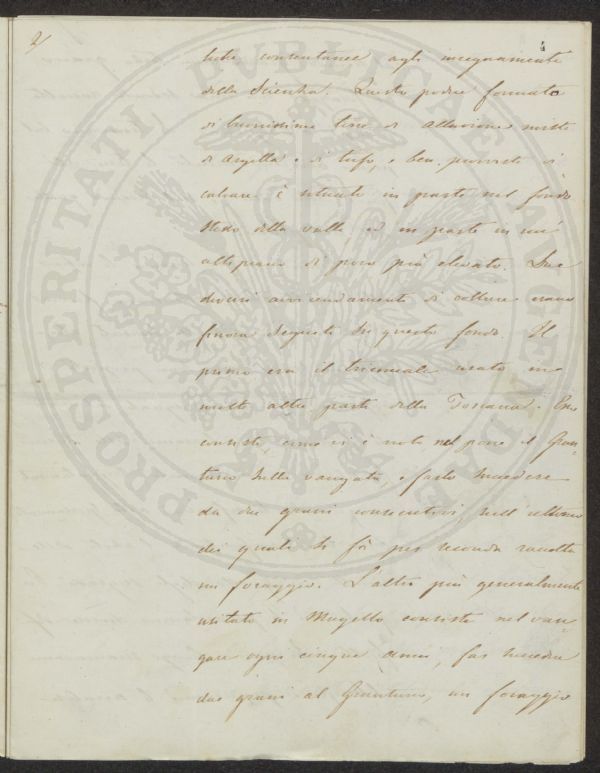 2/
4
tuta consentanea agli insegnamenti
della Scienza. Questo podere formato
di buonissima terra di alluvione mista
di argilla e di tufo, e ben provvista di
calcare è situato in parte nel fondo
stesso della valle, ed in parte in un'
altipiano di poco più elevato. Due
diversi avvicendamenti di culture erano
finora seguiti in questo fondo. Il
primo era il triennale usato in
molte altre parti della Toscana. Esso
consiste, come vi è noto nel porre il Gran=
turco sulla vangata, e farlo succedere
da due grani consecutivi, nell' ultimo
dei quali si fà per seconda raccolta
un foraggio. L'altro più generalmente
usitato in Mugello consiste nel van=
gare ogni cinque anni, far succedere
due grani al Granturco, un foraggio
PROSPERITATI PUBLICAE AUGENDAE